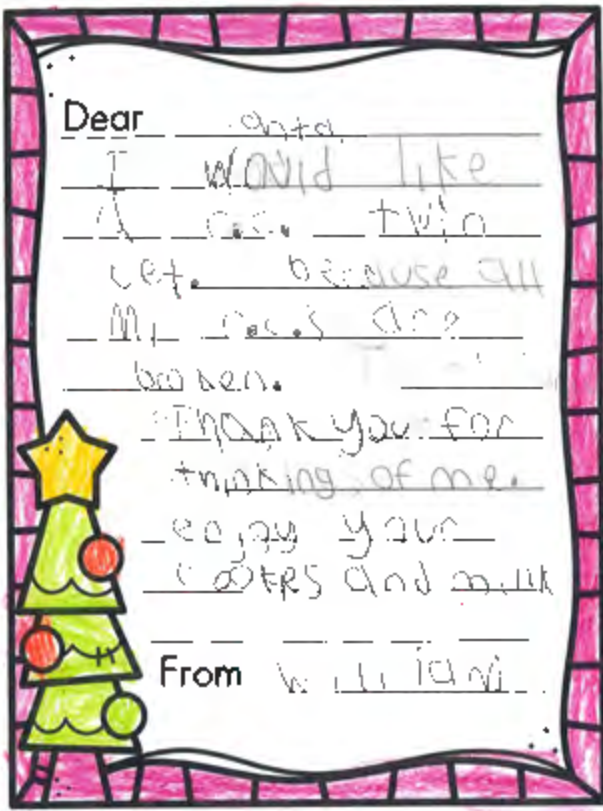 Dear anta
I would like
A r.c. twin
cet. because all
My r.c.s are
broken.
Thank you for
thinking of me.
enjoy your
cookes and milk
From William